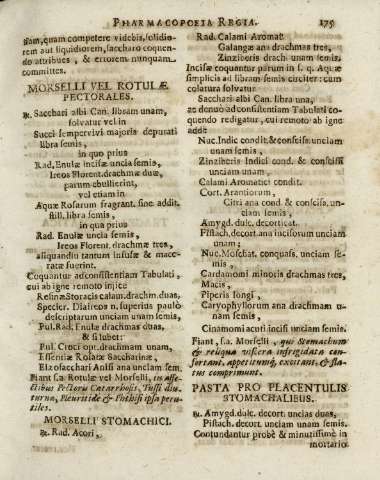 PHARMACOPOEIA REGIA. 175
tiam, quam competere videbis, solidio-
rem aut liquidiorem, saccharo coquen-
do attribues, & errorem nunquam
committes.
MORSELLI VEL ROTULÆ
PECTORALES.
℞. Sacchari albi Can. libram unam,
solvatur vel in
Succi sempervivi majoris depurati
libra semis,
in quo prius
Rad. Enulæ incisæ uncia semis,
Ireos Florent. drachmæ duæ,
parum ebullierint,
vel etiam in
Aquæ Rosarum fragrant. sine addit.
still. libra semis,
in qua prius
Rad. Enulæ uncia semis,
Ireos Florent. drachmæ tres,
aliquandiu tantum infusæ & mace-
ratæ fuerint.
Coquantur ad consistentiam Tabulati,
cui ab igne remoto injice
Resinæ Storacis calam. drachm. duas,
Specier. Diaireos n. superius paulò
descriptarum unciam unam semis,
Pul. Rad. Enulæ drachmas duas,
& si lubet:
Pul. Croci opt. drachmam unam,
Essentiæ Rosatæ Saccharinæ,
Elæosacchari Anisi ana unciam sem.
Fiant f.a. Rotulæ vel Morselli, in affe-
ctibus Pectoris Catarrhosis, Tussi diu-
turna, Pleuritide & Phthisi ipsa peru-
tiles.
MORSELLI STOMACHICI.
℞. Rad. Acori,
Rad. Calami Aromat.
Galangæ ana drachmas tres,
Zinziberis drach. unam semis.
Incisæ coquantur parum in s. q. Aquæ
simplicis ad libram semis circiter: cum
colatura solvatur
Sacchari albi Can. libra una,
ac denuò ad consistentiam Tabulati co-
quendo redigatur, cui remoto ab igne
adde
Nuc. Indic. condit. & consciss. unciam
unam semis,
Zinziberis Indici cond. & conscissi
unciam unam,
Calami Aromatici condit.
Cort. Arantiorum,
Citri ana cond. & conscisss. un-
ciam semis,
Amygd. dulc. decorticat.
Pistach. decort. ana incisorum unciam
unam;
Nuc. Moschat. conquass. unciam se-
mis,
Cardamomi minoris drachmas tres,
Macis,
Piperis longi,
Caryophyllorum ana drachmam u-
nam semis,
Cinamomi acuti incisi unciam semis.
Fiant, f.a. Morselli, qui Stomachum
& reliqua viscera infrigidata con-
fortant, appetitumq; excitant, & fla-
tus comprimunt.
PASTA PRO PLACENTULIS
STOMACHALIBUS.
℞. Amygd. dulc. decort. uncias duas,
Pistach. decort. unciam unam semis.
Contundantur probè & minutissimè in
mortario